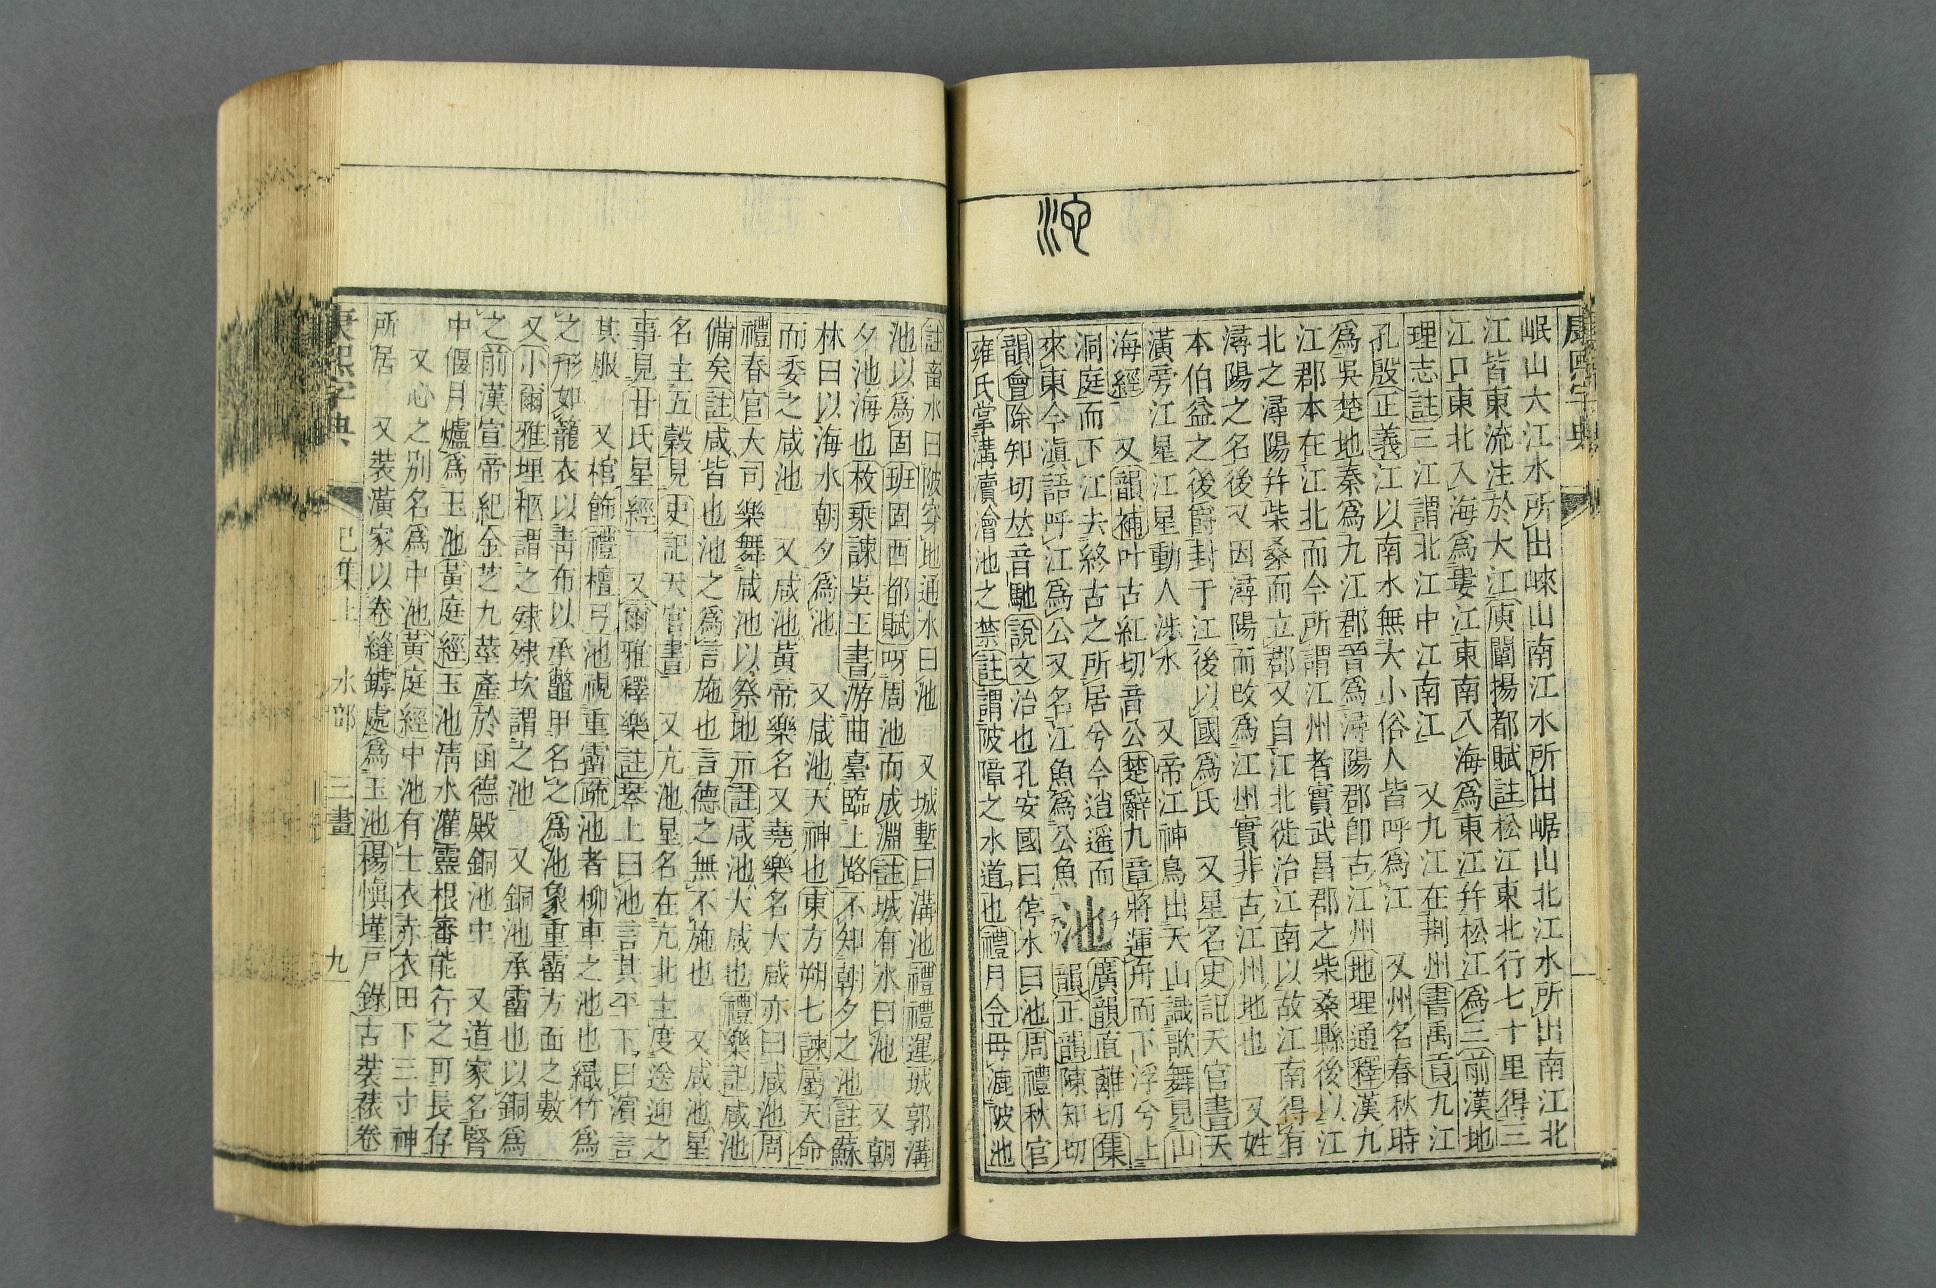 池
康熙字典
岷山大江水所出崍山南江水所出崌山北江水所出南江北
江皆東流注於大江庾闡揚都賦註松江東北行七十里得三
江口東北入海爲婁江東南入海爲東江幷松江爲三前漢地
理志註三江謂北江中江南江 又九江在荆州書禹貢九江
孔殷正義江以南水無大小俗人皆呼爲江 又州名春秋時
爲吳楚地秦爲九江郡晉爲潯陽郡卽古江州地理通釋漢九
江郡本在江北而今所謂江州者實武昌郡之柴桑縣後以江
北之潯陽幷柴桑而立郡又自江北徙治江南以故江南得有
潯陽之名後又因潯陽而改爲江州實非古江州地也 又姓
本伯益之後爵封于江後以國爲氏 又星名史記天官書天
潢旁江星江星動人涉水 又帝江神鳥出天山識歌舞見山
海經 又韻補叶古紅切音公楚辭九章將運舟而下浮兮上
洞庭而下江去終古之所居兮今逍遥而來東今滇語呼江爲公又名江魚爲公魚
池
廣韻直離切集韻正韻陳知切
韻會除知切𠀤音馳說文治也孔安國曰停水曰池周禮秋官
雍氏掌溝瀆澮池之禁註謂陂障之水道也禮月令毋漉陂池
註畜水曰陂穿地通水曰池 又城塹曰溝池禮禮運城郭溝
池以爲固班固西都賦呀周池而成淵註城有水曰池 又朝
夕池海也枚乗諫吳王書游曲臺臨上路不如朝夕之池註蘇
林曰以海水朝夕爲池 又咸池天神也東方朔七諫屬天命
而委之咸池 又咸池黃帝樂名又堯樂名大咸亦曰咸池周
禮春官大司樂舞咸池以祭地示註咸池大咸也禮樂記咸池
備矣註咸皆也池之爲言施也言德之無不施也 又咸池星
名主五穀見史記天官書 又亢池星名在亢北主度送迎之
事見甘氏星經 又爾雅釋樂註琴上曰池言其平下曰濱言
其服 又棺飾禮檀弓池視重霤疏池者柳車之池也織竹爲
之形如籠衣以靑布以承鼈甲名之爲池象重霤方面之數
又小爾雅埋柩謂之殔殔坎謂之池 又銅池承霤也以銅爲
之前漢宣帝紀金芝九莖產於函德殿銅池中 又道家名腎
中偃月爐爲玉池黃庭經玉池淸水灌靈根審能行之可長存
又心之别名爲中池黃庭經中池有士衣赤衣田下三寸神
所居 又裝潢家以卷縫罅處爲玉池楊愼墐戸錄古裝裱卷
康熙字典 巳集上 水部 三畫 九